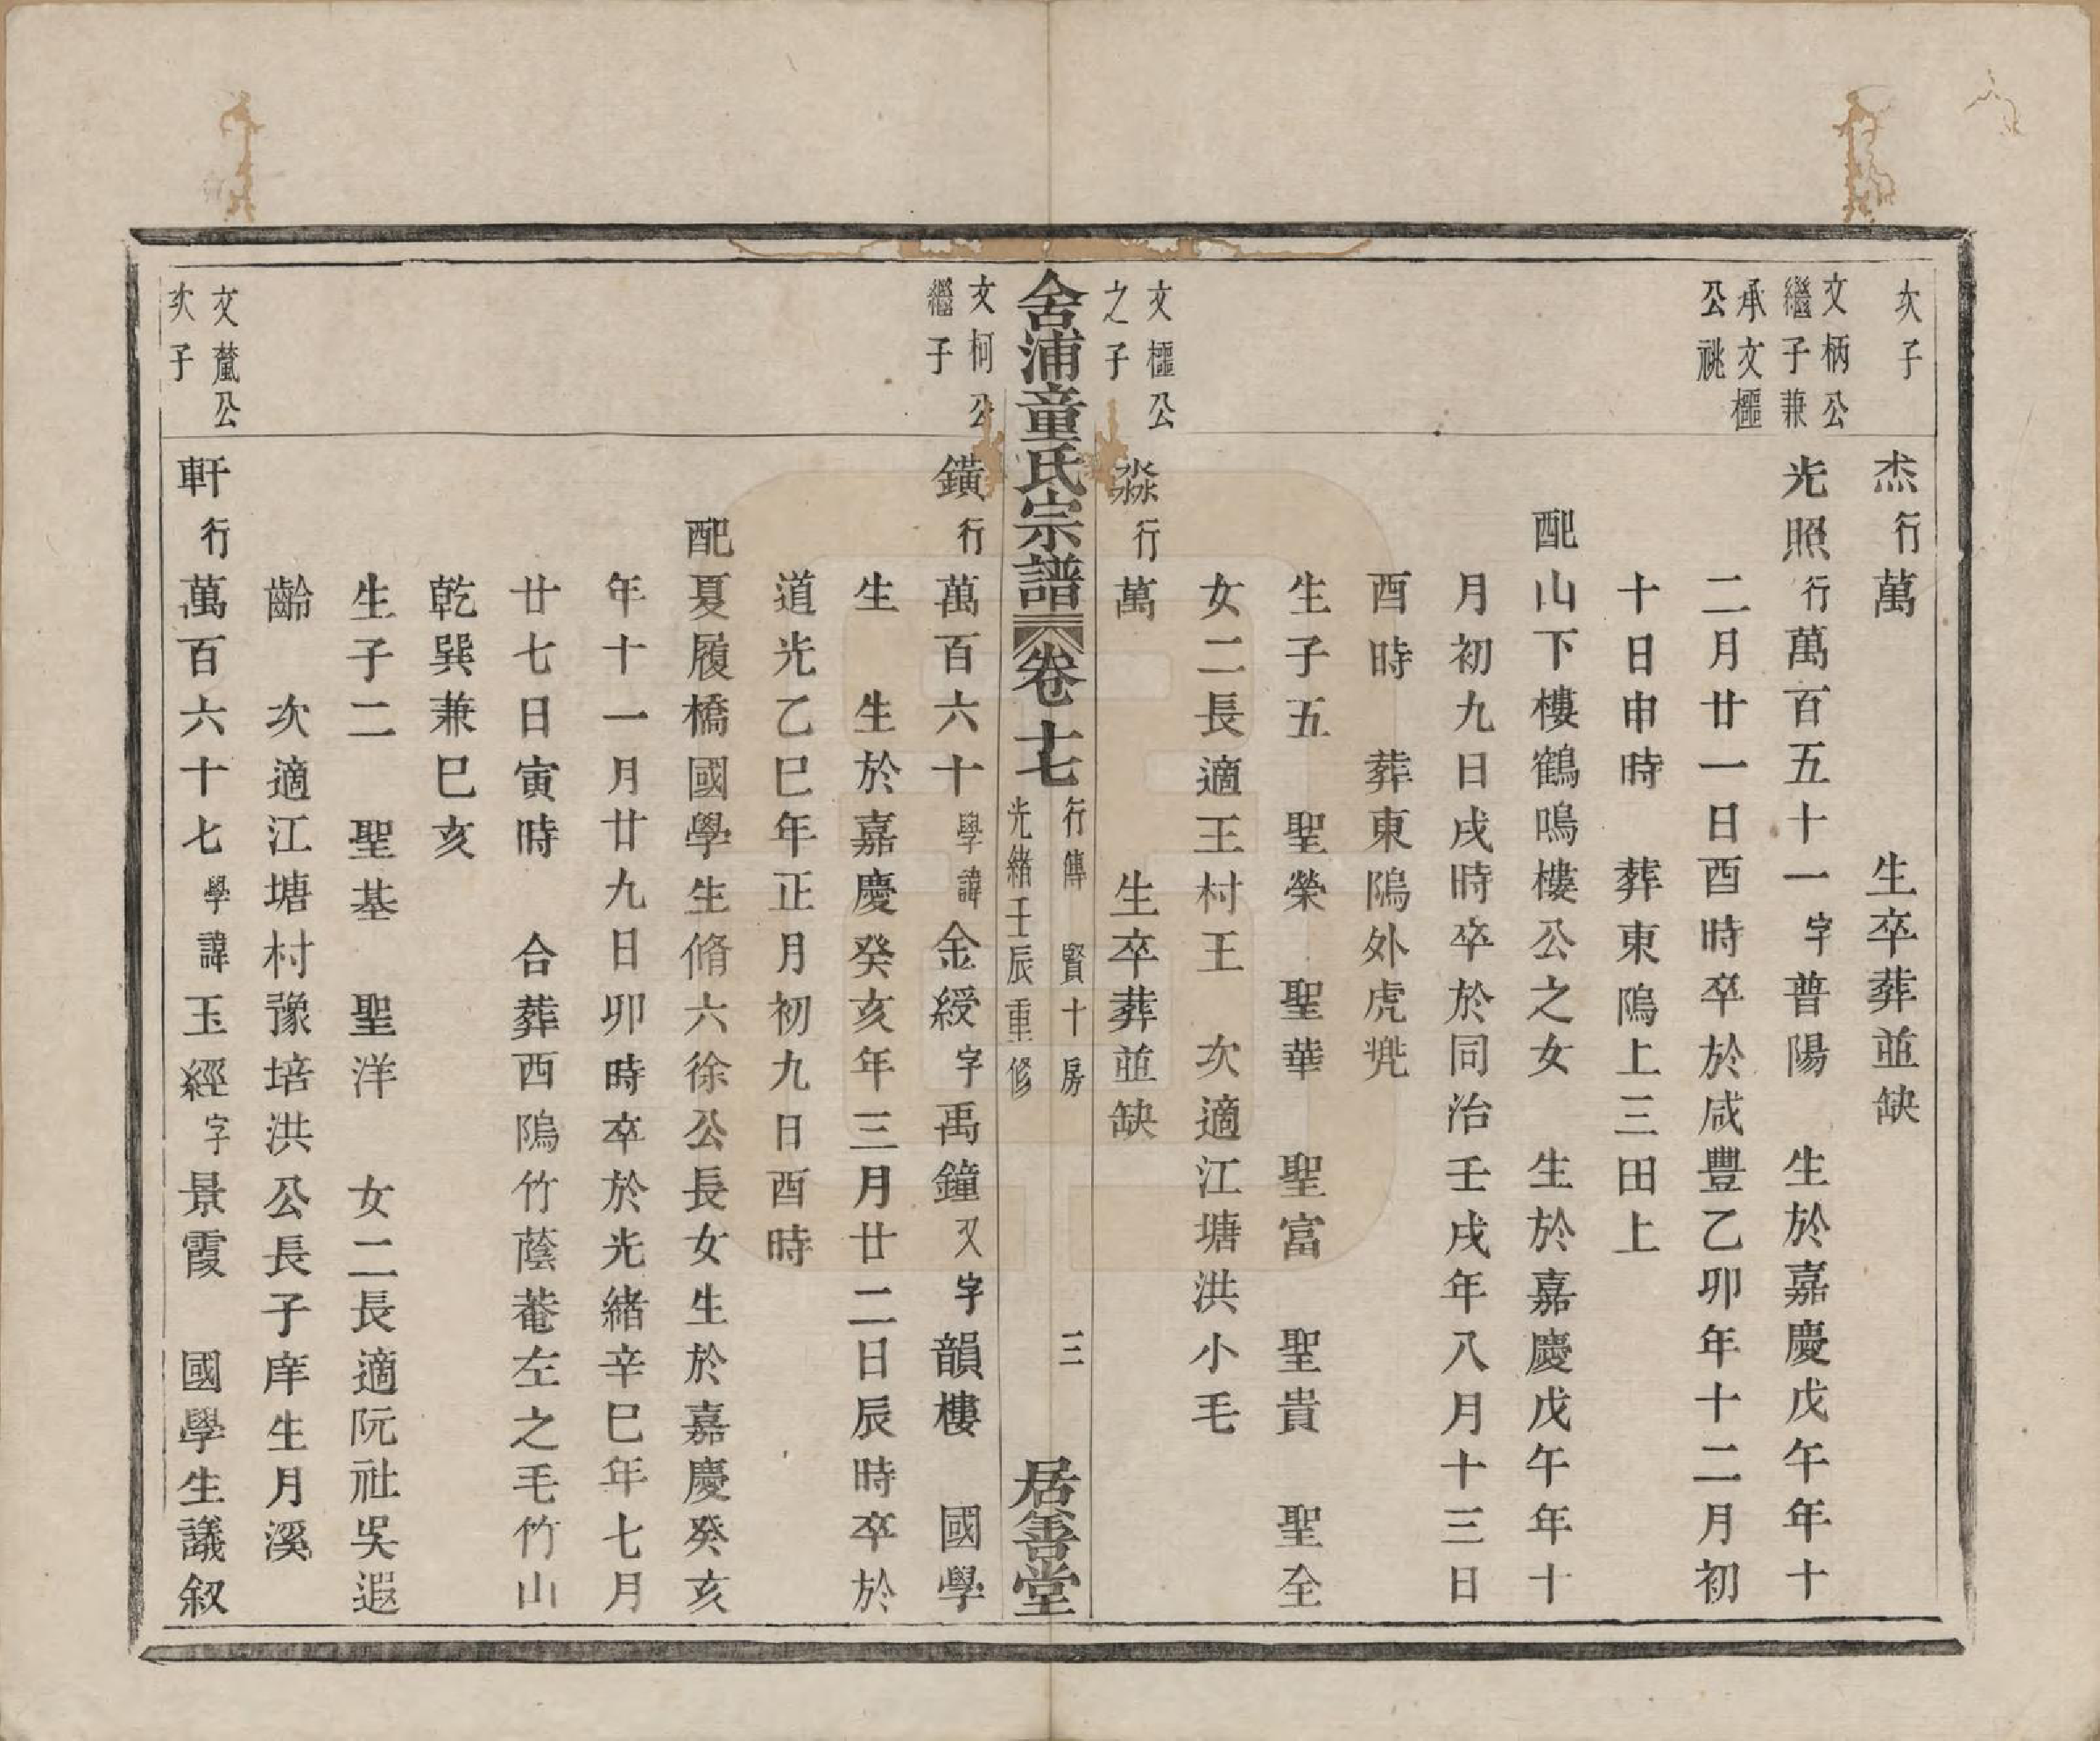 次子
杰行萬　生卒葬並缺
文柄公
繼子兼
承文樞
公祧
光照行萬百五十一字普陽　生於嘉慶戊午年十
二月廿一日酉時卒於咸豐乙卯年十二月初
十日申時　葬東隝上三田上
配山下樓鶴鳴樓公之女　生於嘉慶戊午年十
月初九日戌時卒於同治壬戌年八月十三日
酉時　葬東隝外虎兠
生子五　聖榮　聖華　聖富　聖貴　聖全
女二長適王村王　次適江塘洪小毛
文樞公
之子
淼行萬　生卒葬並缺
舍浦童氏宗譜　卷十七　行傳　賢十房　三
光緒壬辰重修　居善堂
文柯公
繼子
鐄行萬百六十學諱金綬字禹鐘又字韻樓　國學
生　生於嘉慶癸亥年三月廿二日辰時卒於
道光乙巳年正月初九日酉時
配夏履橋國學生脩六徐公長女生於嘉慶癸亥
年十一月廿九日卯時卒於光緒辛巳年七月
廿七日寅時　合葬西隝竹蔭菴左之毛竹山
乾巽兼巳亥
生子二　聖基　聖洋　女二長適阮社吳遐
齡　次適江塘村豫培洪公長子庠生月溪
文公
次子
軒行萬百六十七學諱玉經字景霞　國學生議叙